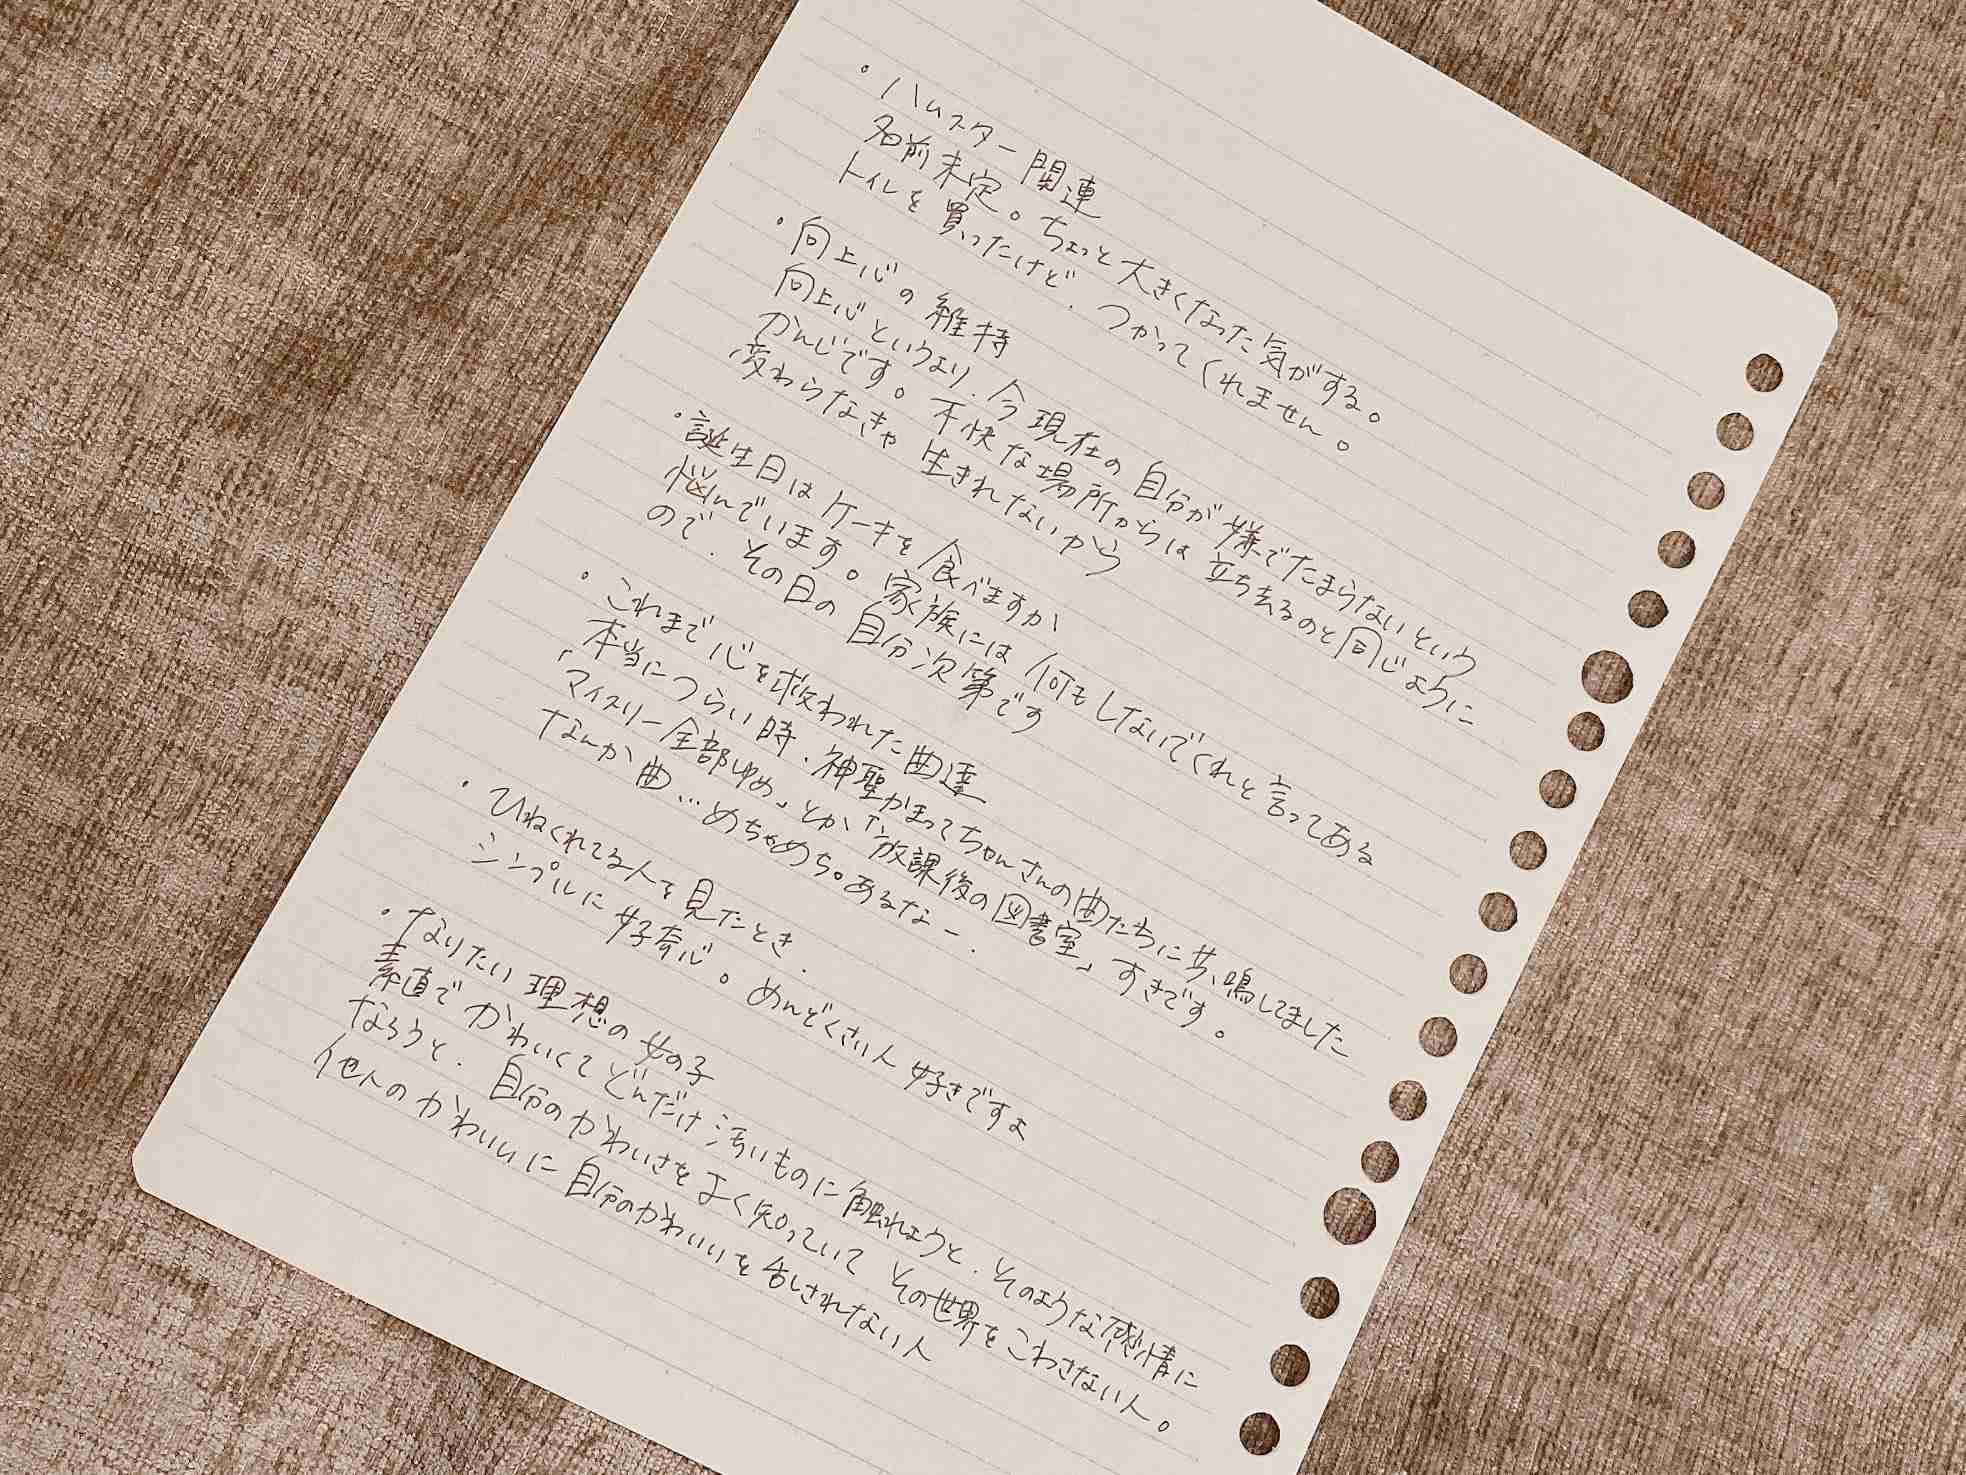 ・ハムスター関連
名前未定。ちょっと大きくなった気がする。
トイレを買ったけど、つかってくれません。
・向上心の維持
向上心というより、今現在の自分が嫌でたまらないという
かんじです。不快な場所からは立ち去るのと同じように
変わらなきゃ生きれないから
・誕生日はケーキを食べますか
悩んでいます。家族には何もしないでくれと言ってある
ので、その日の自分次第です
・これまで心を救われた曲達
本当につらい時、神聖かまってちゃんさんの曲たちに共鳴してました
「マイスリー全部ゆめ」とか、「放課後の図書室」すきです。
なんか曲…めちゃめちゃあるなー、
・ひねくれてる人を見たとき、
シンプルに好奇心。めんどくさい人好きですよ
・なりたい理想の女の子
素直でかわいくてどんだけ汚いものに触れようと、そのような感情に
なろうと、自分のかわいさをよく知っていてその世界をこわさない人。
他人のかわいいに自分のかわいいを乱されない人